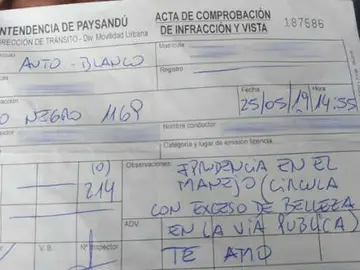 NTENDENCIA DE PAYSANDÚ
DIRECCIÓN DE TRÁNSITO - Div. Movilidad Urbana
ACTA DE COMPROBACIÓN
DE INFRACCIÓN Y VISTA
187586
Matrícula
AUTO - BLANCO
Registro
Fecha
O NEGRO 1169
25/05/19 14:55
Nombre conductor
Categoría y lugar de emisión licencia
(0)
214
Observaciones:
IPRUDENCIA EN EL
MANEJO (CIRCULA
CON EXCESO DE BELLEZA
ADV
EN LA VÍA PUBLICA)
TE AMO
V.B.
Nº Inspector